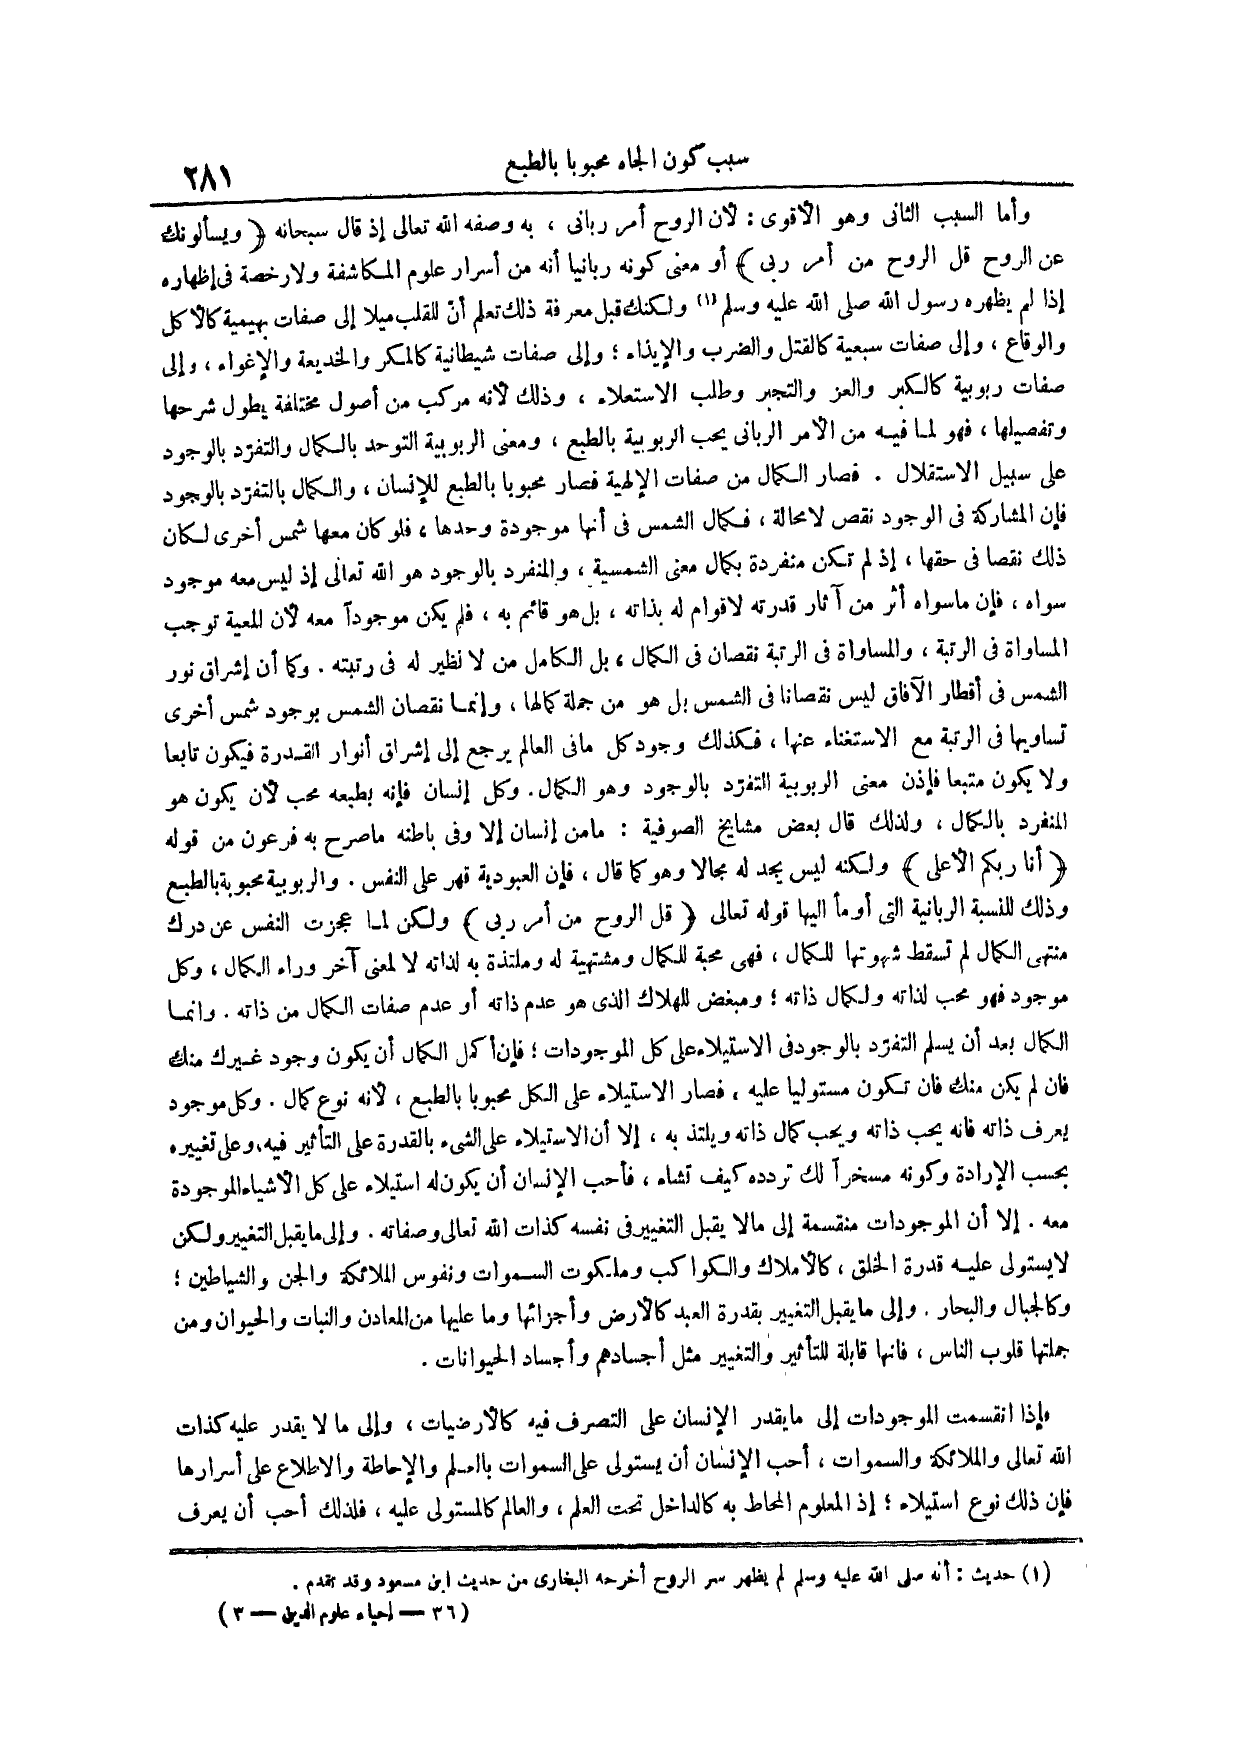 سبب كون الجاه محبوبا بالطبع
٢٨١
وأما السبب الثانى وهو الأقوى : لأن الروح أمر ربانى ، به وصفه الله تعالى إذ قال سبحانه ﴿ ويسألونك
عن الروح قل الروح من أمر ربى ﴾ أو معنى كونه ربانيا أنه من أسرار علوم المكاشفة ولا رخصة فى إظهاره
إذا لم يظهره رسول الله صلى الله عليه وسلم (١) ولكنك قبل معرفة ذلك تعلم أنّ للقلب ميلا إلى صفات بهيمية كالأكل
والوقاع ، وإلى صفات سبعية كالقتل والضرب والإيذاء ؛ وإلى صفات شيطانية كالمكر والخديعة والإغواء ، وإلى
صفات ربوبية كالكبر والعز والتجبر وطلب الاستعلاء ، وذلك لأنه مركب من أصول مختلفة يطول شرحها
وتفصيلها ، فهو لما فيه من الأمر الربانى يحب الربوبية بالطبع ، ومعنى الربوبية التوحد بالكمال والتفرّد بالوجود
على سبيل الاستقلال . فصار الكمال من صفات الإلهية فصار محبوبا بالطبع للإنسان ، والكمال بالتفرّد بالوجود
فإن المشاركة فى الوجود نقص لا محالة ، فكمال الشمس فى أنها موجودة وحدها ، فلو كان معها شمس أخرى لكان
ذلك نقصا فى حقها ، إذ لم تكن منفردة بكمال معنى الشمسية ، والمنفرد بالوجود هو الله تعالى إذ ليس معه موجود
سواه ، فإن ماسواه أثر من آثار قدرته لا قوام له بذاته ، بل هو قائم به ، فلم يكن موجوداً معه لأن المعية توجب
المساواة فى الرتبة ، والمساواة فى الرتبة نقصان فى الكمال ، بل الكامل من لا نظير له فى رتبته . وكما أن إشراق نور
الشمس فى أقطار الآفاق ليس نقصانا فى الشمس بل هو من جملة كمالها ، وإنما نقصان الشمس بوجود شمس أخرى
تساويها فى الرتبة مع الاستغناء عنها ، فكذلك وجود كل مافى العالم يرجع إلى إشراق أنوار القدرة فيكون تابعا
ولا يكون متبعا فإذن معنى الربوبية التفرّد بالوجود وهو الكمال . وكل إنسان فإنه بطبعه محب لأن يكون هو
المنفرد بالكمال ، ولذلك قال بعض مشايخ الصوفية : مامن إنسان إلا وفى باطنه ماصرح به فرعون من قوله
﴿ أنا ربكم الأعلى ﴾ ولكنه ليس يجد له مجالا وهو كما قال ، فإن العبودية قهر على النفس . والربوبية محبوبة بالطبع
وذلك للنسبة الربانية التى أومأ اليها قوله تعالى ﴿ قل الروح من أمر ربى ﴾ ولكن لما عجزت النفس عن درك
منتهى الكمال لم تسقط شهوتها للكمال ، فهى محبة للكمال ومشتهية له وملتذة به لذاته لا لمعنى آخر وراء الكمال ، وكل
موجود فهو محب لذاته ولكمال ذاته ؛ ومبغض للهلاك الذى هو عدم ذاته أو عدم صفات الكمال من ذاته . وإنما
الكمال بعد أن يسلم التفرّد بالوجود فى الاستيلاء على كل الموجودات ؛ فإن أكمل الكمال أن يكون وجود غيرك منك
فان لم يكن منك فان تكون مستوليا عليه ، فصار الاستيلاء على الكل محبوبا بالطبع ، لأنه نوع كمال . وكل موجود
يعرف ذاته فانه يحب ذاته ويحب كمال ذاته ويلتذ به ، إلا أن الاستيلاء على الشىء بالقدرة على التأثير فيه، وعلى تغييره
بحسب الإرادة وكونه مسخراً لك تردده كيف تشاء ، فأحب الإنسان أن يكون له استيلاء على كل الأشياء الموجودة
معه . إلا أن الموجودات منقسمة إلى مالا يقبل التغيير فى نفسه كذات الله تعالى وصفاته . وإلى ما يقبل التغيير ولكن
لا يستولى عليه قدرة الخلق ، كالأملاك والكواكب وملكوت السموات ونفوس الملائكة والجن والشياطين ؛
وكالجبال والبحار . وإلى ما يقبل التغيير بقدرة العبد كالأرض وأجزائها وما عليها من المعادن والنبات والحيوان ومن
جملتها قلوب الناس ، فانها قابلة للتأثير والتغيير مثل أجسادهم وأجساد الحيوانات .
فإذا انقسمت الموجودات إلى مايقدر الإنسان على التصرف فيه كالأرضيات ، وإلى ما لا يقدر عليه كذات
الله تعالى والملائكة والسموات ، أحب الإنسان أن يستولى على السموات بالعلم والإحاطة والاطلاع على أسرارها
فإن ذلك نوع استيلاء ؛ إذ المعلوم المحاط به كالداخل تحت العلم ، والعالم كالمستولى عليه ، فلذلك أحب أن يعرف
(١) حديث : أنه صلى الله عليه وسلم لم يظهر سر الروح أخرجه البخارى من حديث ابن مسعود وقد تقدم .
( ٣٦ — إحياء علوم الدين — ٣ )